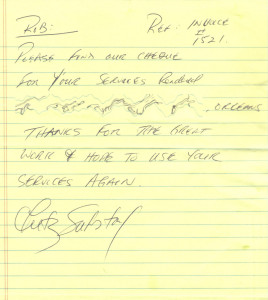 ROB: REF: INVOICE
# 1521.
PLEASE FIND OUR CHEQUE
FOR YOUR SERVICES RENDERED
ORLEANS
THANKS FOR THE GREAT
WORK & HOPE TO USE YOUR
SERVICES AGAIN.